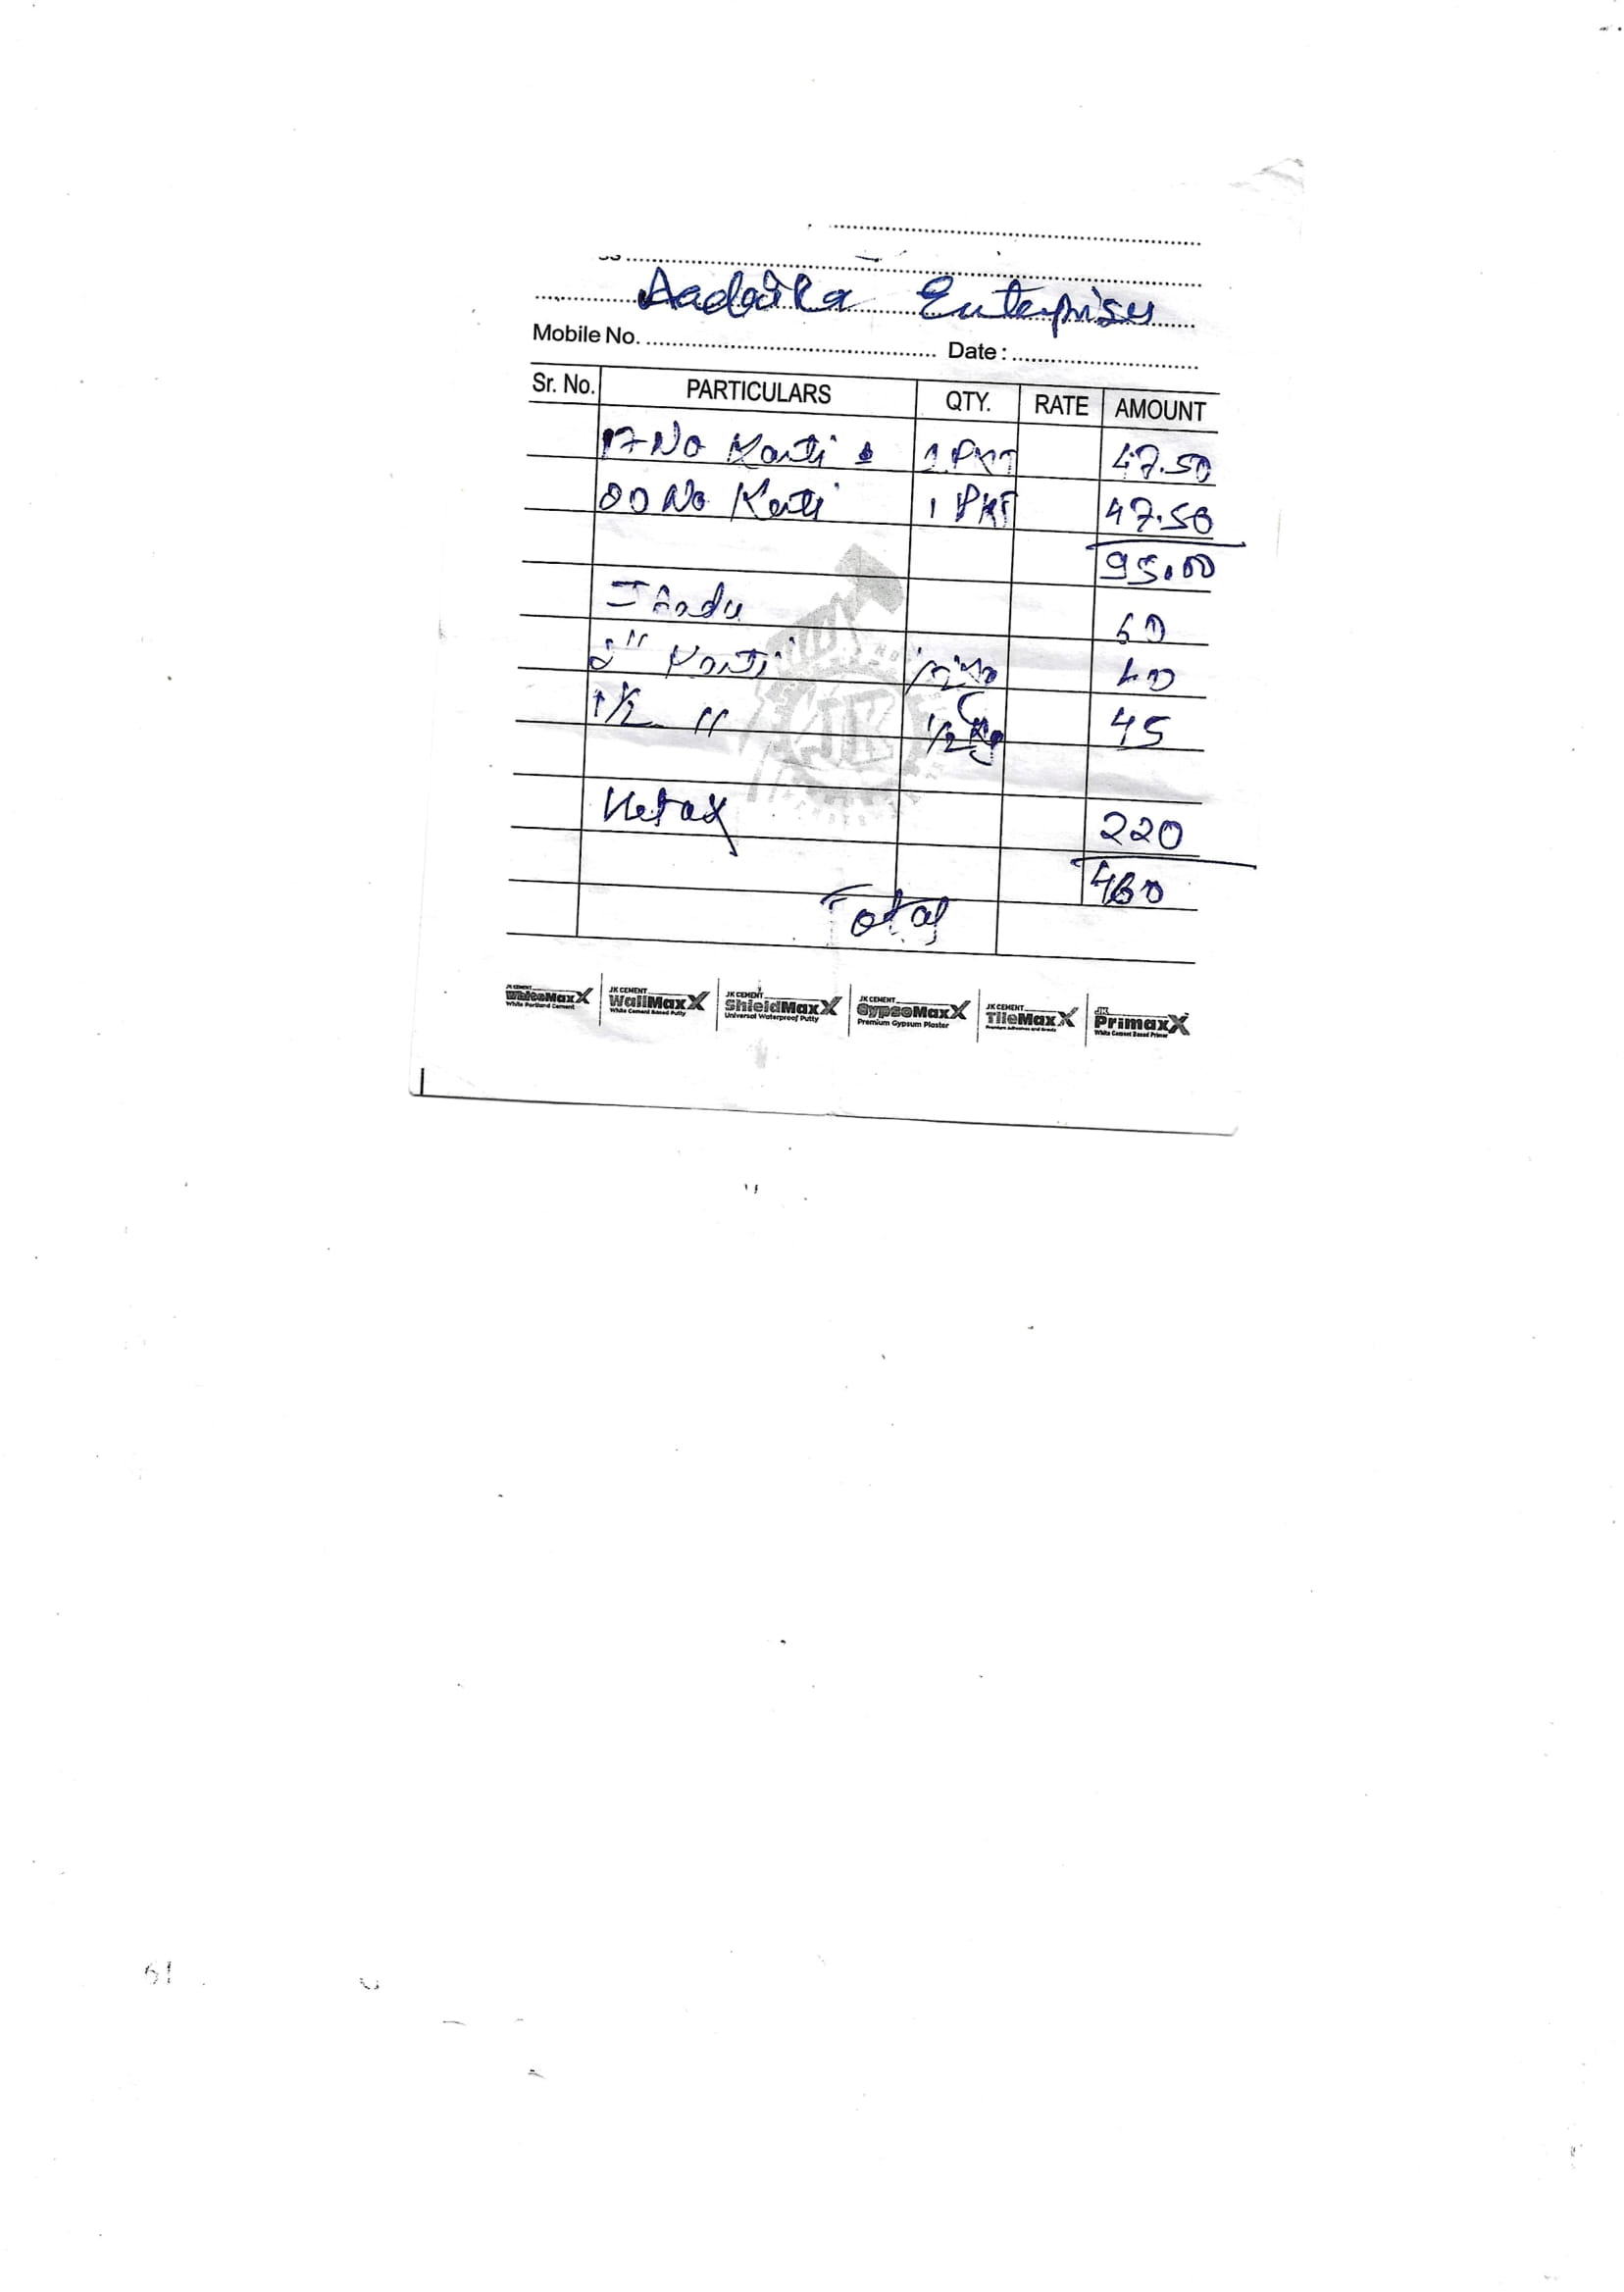 Enterprises
Mobile No. Date :
Sr. No. PARTICULARS QTY. RATE AMOUNT
17 No Kanti 1 PKT 47.50
No Kanti 1 PKT 47.50
95.00
Jhadu 60
2" Kanti 40
1½ " ½ Kg 45
220
460
Total
JK CEMENT WhiteMaxX White Portland Cement
JK CEMENT WallMaxX White Cement Based Putty
JK CEMENT ShieldMaxX Universal Waterproof Putty
JK CEMENT GypsoMaxX Premium Gypsum Plaster
JK CEMENT TileMaxX
JK PrimaxX White Cement Based Primer